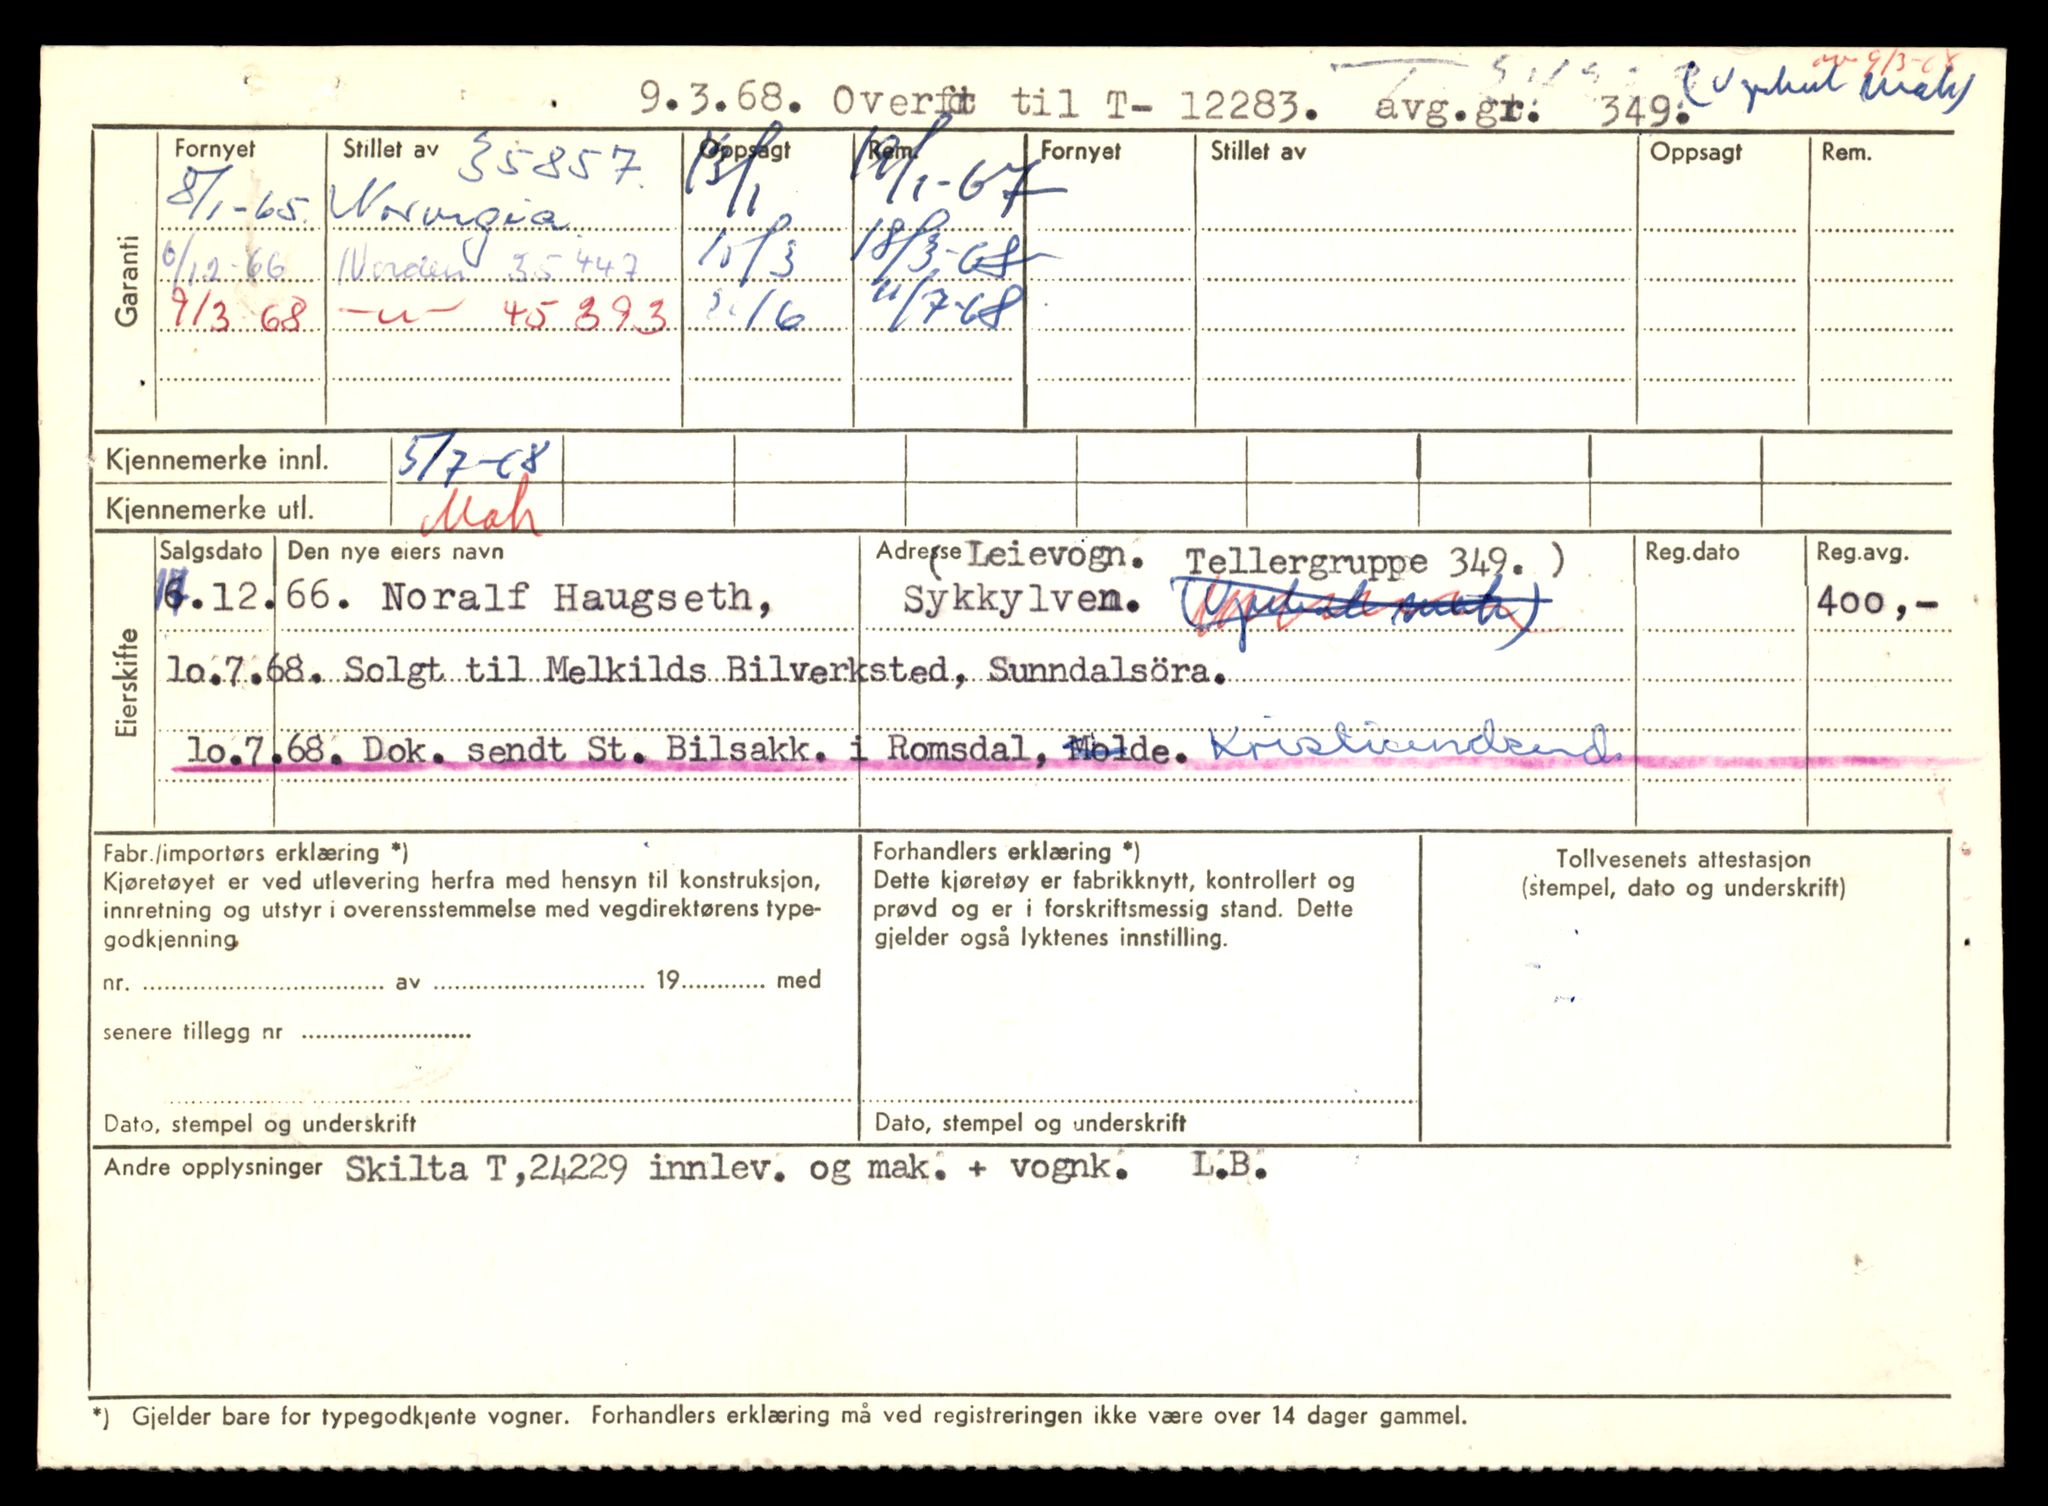 9.3.68. Overført til T- 12283. avg.gr: 349. (Opphút mak)
Garanti
Fornyet Stillet av Oppsagt Rem. Fornyet Stillet av Oppsagt Rem.
8/1-65. Norvegia 35857. 13/1 19/1-67
6/12-66 Norden 35447 15/3 18/3-68
9/3 68 —"— 45393 /6 11/7-68
Kjennemerke innl. 5/7-68
Kjennemerke utl. Mak
Eierskifte
Salgsdato Den nye eiers navn Adresse Reg.dato Reg.avg.
(Leievogn. Tellergruppe 349. )
.12.66. Noralf Haugseth, Sykkylven. 400,-
lo.7.68. Solgt til Melkilds Bilverksted, Sunndalsöra.
lo.7.68. Dok. sendt St. Bilsakk. i Romsdal, Molde. Kristiansund.
Fabr./importørs erklæring *)
Kjøretøyet er ved utlevering herfra med hensyn til konstruksjon,
innretning og utstyr i overensstemmelse med vegdirektørens type-
godkjenning
nr. ................ av ................ 19........ med
senere tillegg nr ................
Dato, stempel og underskrift
Forhandlers erklæring *)
Dette kjøretøy er fabrikknytt, kontrollert og
prøvd og er i forskriftsmessig stand. Dette
gjelder også lyktenes innstilling.
Dato, stempel og underskrift
Tollvesenets attestasjon
(stempel, dato og underskrift)
Andre opplysninger Skilta T,24229 innlev. og mak. + vognk. L.B.
*) Gjelder bare for typegodkjente vogner. Forhandlers erklæring må ved registreringen ikke være over 14 dager gammel.